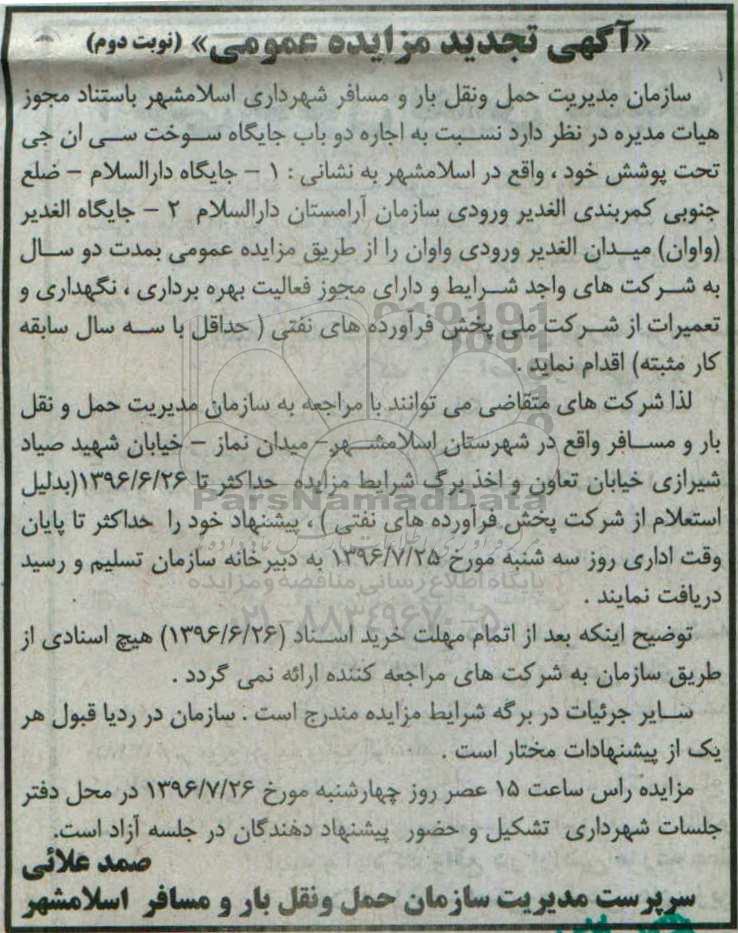 «آگهی تجدید مزایده عمومی» (نوبت دوم)
سازمان مدیریت حمل ونقل بار و مسافر شهرداری اسلامشهر باستناد مجوز
هیات مدیره در نظر دارد نسبت به اجاره دو باب جایگاه سوخت سی ان جی
تحت پوشش خود ، واقع در اسلامشهر به نشانی : ۱ – جایگاه دارالسلام – ضلع
جنوبی کمربندی الغدیر ورودی سازمان آرامستان دارالسلام ۲ – جایگاه الغدیر
(واوان) میدان الغدیر ورودی واوان را از طریق مزایده عمومی بمدت دو سال
به شرکت های واجد شرایط و دارای مجوز فعالیت بهره برداری ، نگهداری و
تعمیرات از شرکت ملی پخش فرآورده های نفتی ( حداقل با سه سال سابقه
کار مثبته) اقدام نماید .
لذا شرکت های متقاضی می توانند با مراجعه به سازمان مدیریت حمل و نقل
بار و مسافر واقع در شهرستان اسلامشهر– میدان نماز – خیابان شهید صیاد
شیرازی خیابان تعاون و اخذ برگ شرایط مزایده حداکثر تا ۱۳۹۶/۶/۲۶(بدلیل
ParsNamadData
استعلام از شرکت پخش فرآورده های نفتی ) ، پیشنهاد خود را حداکثر تا پایان
وقت اداری روز سه شنبه مورخ ۱۳۹۶/۷/۲۵ به دبیرخانه سازمان تسلیم و رسید
پایگاه اطلاع رسانی مناقصه و مزایده
دریافت نمایند .
۰۲۱-۸۸۳۴۹۶۷۰-۵
توضیح اینکه بعد از اتمام مهلت خرید اسناد (۱۳۹۶/۶/۲۶) هیچ اسنادی از
طریق سازمان به شرکت های مراجعه کننده ارائه نمی گردد .
سایر جزئیات در برگه شرایط مزایده مندرج است . سازمان در ردیا قبول هر
یک از پیشنهادات مختار است .
مزایده راس ساعت ۱۵ عصر روز چهارشنبه مورخ ۱۳۹۶/۷/۲۶ در محل دفتر
جلسات شهرداری تشکیل و حضور پیشنهاد دهندگان در جلسه آزاد است.
صمد علائی
سرپرست مدیریت سازمان حمل ونقل بار و مسافر اسلامشهر